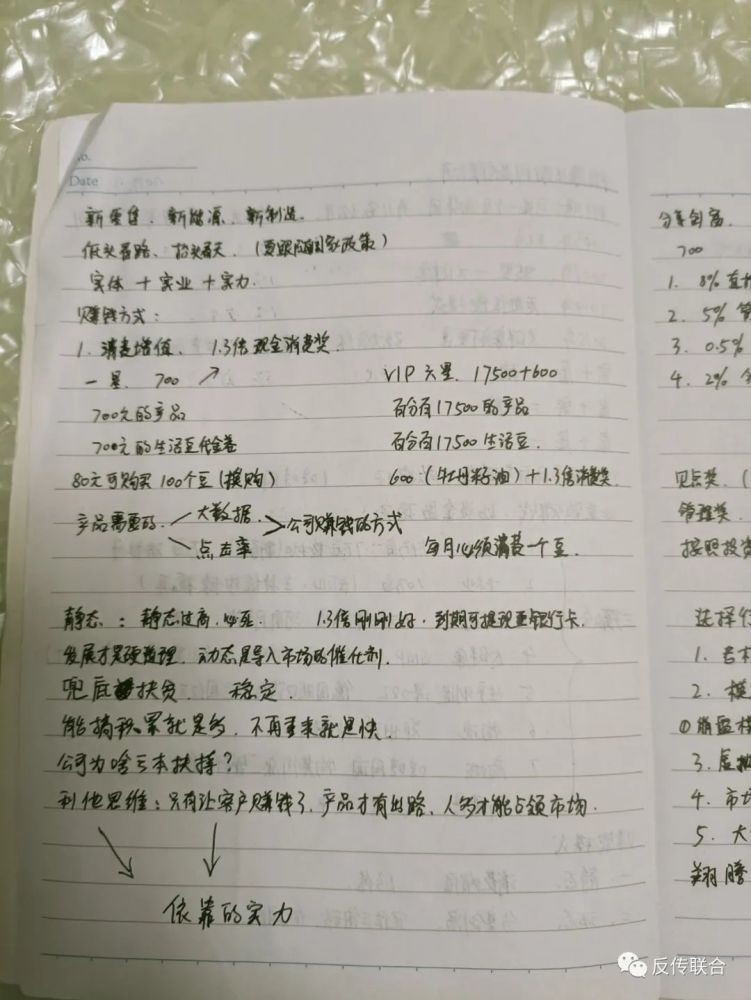 No.
Date
新零售、新能源、新制造.
低头看路、抬头看天.（要跟随国家政策）
实体 + 实业 + 实力.
赚钱方式：
1. 消费增值、1.3倍现金消费奖.
一星. 700 ↗ VIP 六星. 17500+600
700元的产品 百分百17500的产品
700元的生活豆代金卷 百分百17500生活豆.
80元可购买100个豆(换购) 600（牡丹籽油）+1.3倍消费奖.
产品需要的. 大数据. 点击率 > 公司赚钱的方式 每月必须消费一个豆.
静态：静态过高.必死. 1.3倍刚刚好.到期可提现至银行卡.
发展才是硬道理. 动态是导入市场的催化剂.
兜底扶贫. 稳定.
能搞积累就是多. 不再重来就是快.
公司为啥亏本扶持？
利他思维：只有让客户赚钱了.产品才有出路、人多才能占领市场.
依靠的实力
分享创富
700
1. 8% 直
2. 5% 管
3. 0.5%
4. 2%
见点奖.（
管理奖.
按照投资
选择行
1. 看
2. 模
①崩盘
3. 虚拟
4. 市场
5. 大
翔腾
反传联合